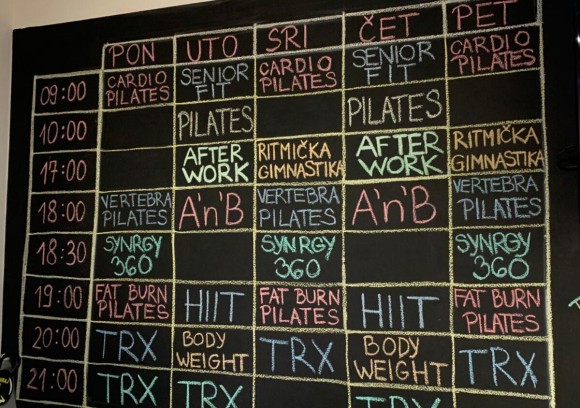 PON UTO SRI ČET PET
09:00 CARDIO PILATES SENIOR FIT CARDIO PILATES SENIOR FIT CARDIO PILATES
10:00 PILATES PILATES
17:00 AFTER WORK RITMIČKA GIMNASTIKA AFTER WORK RITMIČKA GIMNASTIKA
18:00 VERTEBRA PILATES A'n'B VERTEBRA PILATES A'n'B VERTEBRA PILATES
18:30 SYNRGY 360 SYNRGY 360 SYNRGY 360
19:00 FAT BURN PILATES HIIT FAT BURN PILATES HIIT FAT BURN PILATES
20:00 TRX BODY WEIGHT TRX BODY WEIGHT TRX
21:00 TRX TRX TRX